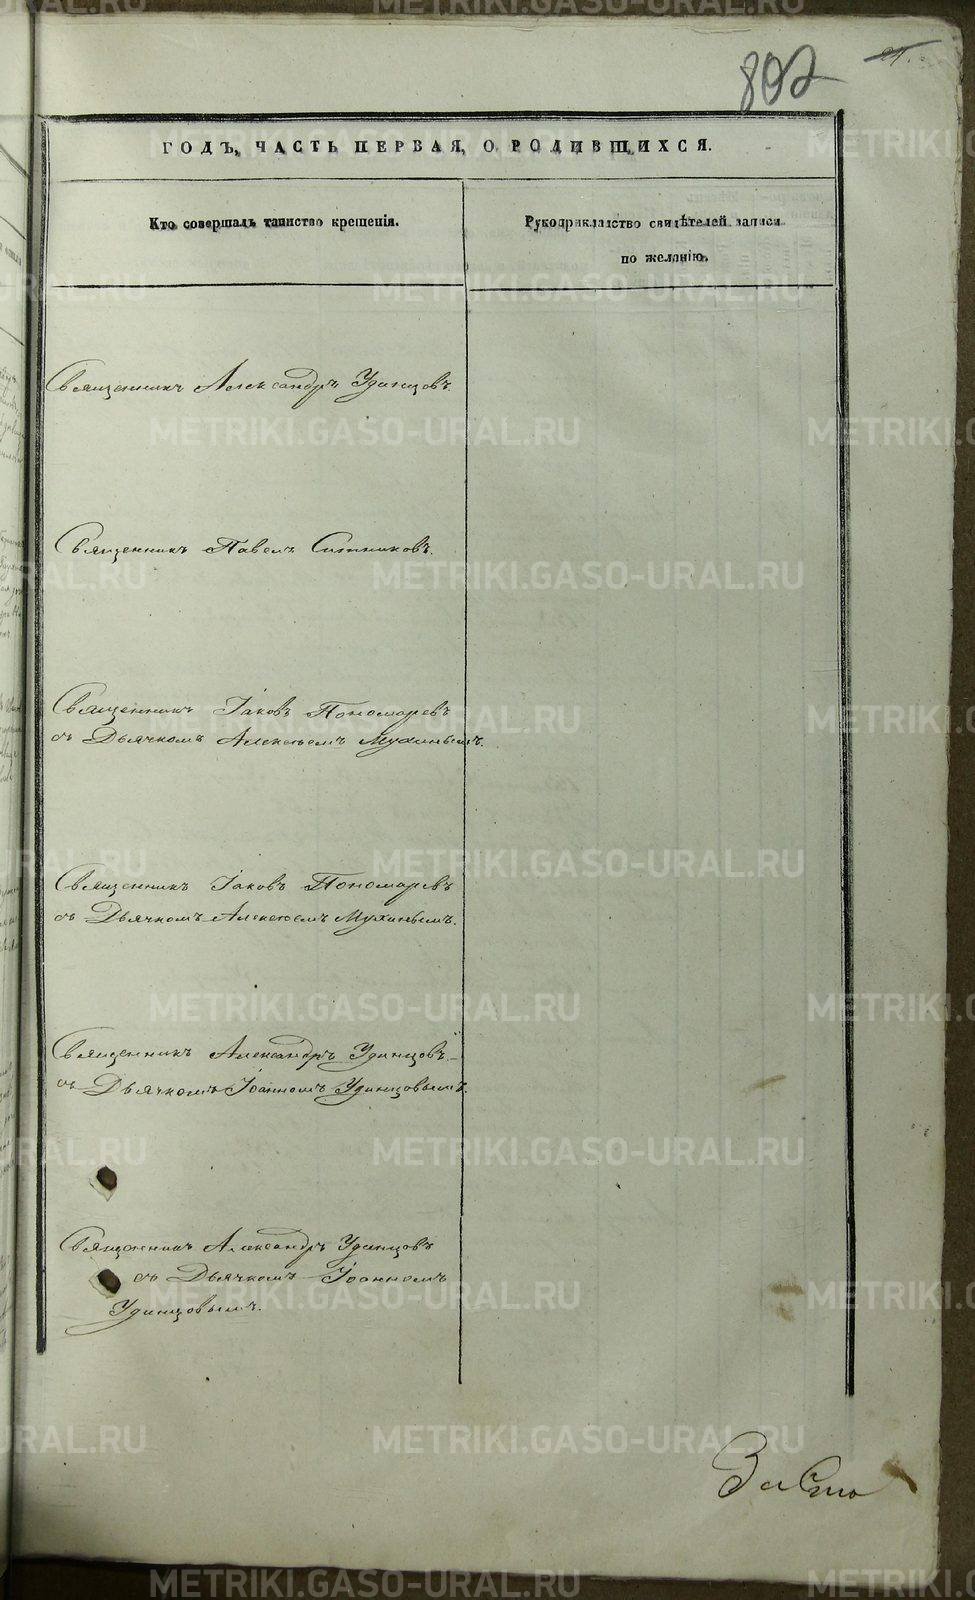 802
ГОДЪ, ЧАСТЬ ПЕРВАЯ, О РОДИВШИХСЯ.
Кто совершалъ таинство крещенія.
Рукоприкладство свидѣтелей записи
по желанію.
Священникъ Александръ Удинцовъ.
Священникъ Павелъ Ситниковъ.
Священникъ Іаковъ Пономаревъ
съ Дьячкомъ Алексѣемъ Мухинымъ.
Священникъ Іаковъ Пономаревъ
съ Дьячкомъ Алексѣемъ Мухинымъ.
Священникъ Александръ Удинцовъ
съ Дьячкомъ Іоанномъ Удинцовымъ.
Священникъ Александръ Удинцовъ
съ Дьячкомъ Іоанномъ
Удинцовымъ.
METRIKI.GASO-URAL.RU